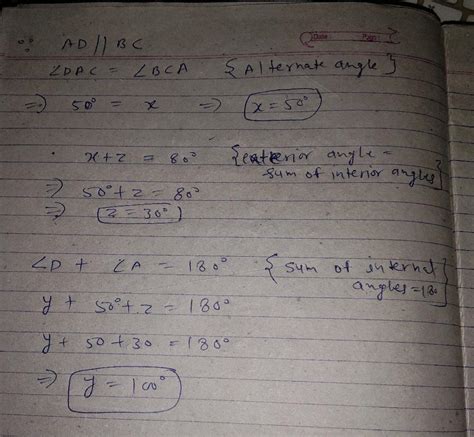 Date Page
∵ AD || BC
∠DAC = ∠BCA {Alternate angle}
⇒ 50° = x ⇒ x = 50°
x + z = 80° {exterior angle =
sum of interior angles}
⇒ 50° + z = 80°
⇒ z = 30°
∠D + ∠A = 180° {sum of internal
angles = 180}
y + 50° + z = 180°
y + 50 + 30 = 180°
⇒ y = 100°